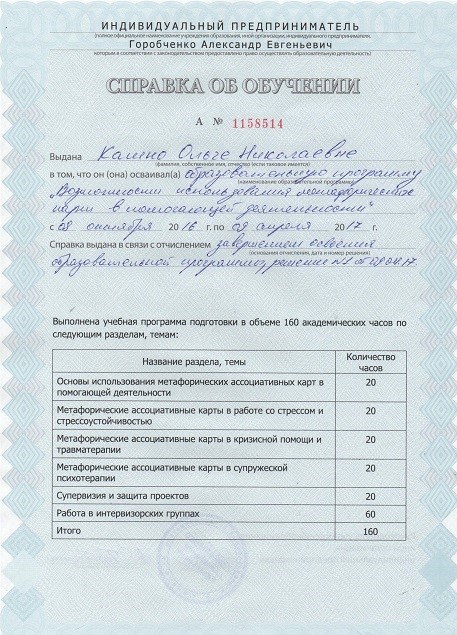 ИНДИВИДУАЛЬНЫЙ ПРЕДПРИНИМАТЕЛЬ
(полное официальное наименование учреждения образования, иной организации, индивидуального предпринимателя,
Горобченко Александр Евгеньевич
которым в соответствии с законодательством предоставлено право осуществлять образовательную деятельность)
СПРАВКА ОБ ОБУЧЕНИИ
А № 1158514
Выдана Кашко Ольге Николаевне
(фамилия, собственное имя, отчество (если таковое имеется)
в том, что он (она) осваивал(а) образовательную программу
(наименование образовательной программы)
"Возможности использования метафорических
карт в помогающей деятельности"
с 08 октября 2016 г. по 09 апреля 2017 г.
Справка выдана в связи с отчислением завершением освоения
(основания отчисления, дата и номер решения)
образовательной программы, решение №1 от 09.04.17.
Выполнена учебная программа подготовки в объеме 160 академических часов по
следующим разделам, темам:
Название раздела, темы
Количество
часов
Основы использования метафорических ассоциативных карт в
помогающей деятельности
20
Метафорические ассоциативные карты в работе со стрессом и
стрессоустойчивостью
20
Метафорические ассоциативные карты в кризисной помощи и
травматерапии
20
Метафорические ассоциативные карты в супружеской
психотерапии
20
Супервизия и защита проектов 20
Работа в интервизорских группах 60
Итого 160